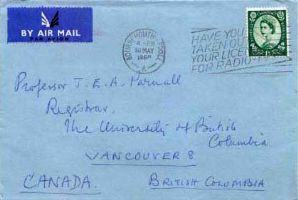 BY AIR MAIL
PAR AVION
BOURNEMOUTH-POOLE
MAY
A
HAVE YOU
TAKEN OUT
YOUR LICENCE
FOR RADIO
Professor J. E. A. Parnall
Registrar,
The University of British
Columbia
VANCOUVER 8
CANADA. BRITISH COLUMBIA